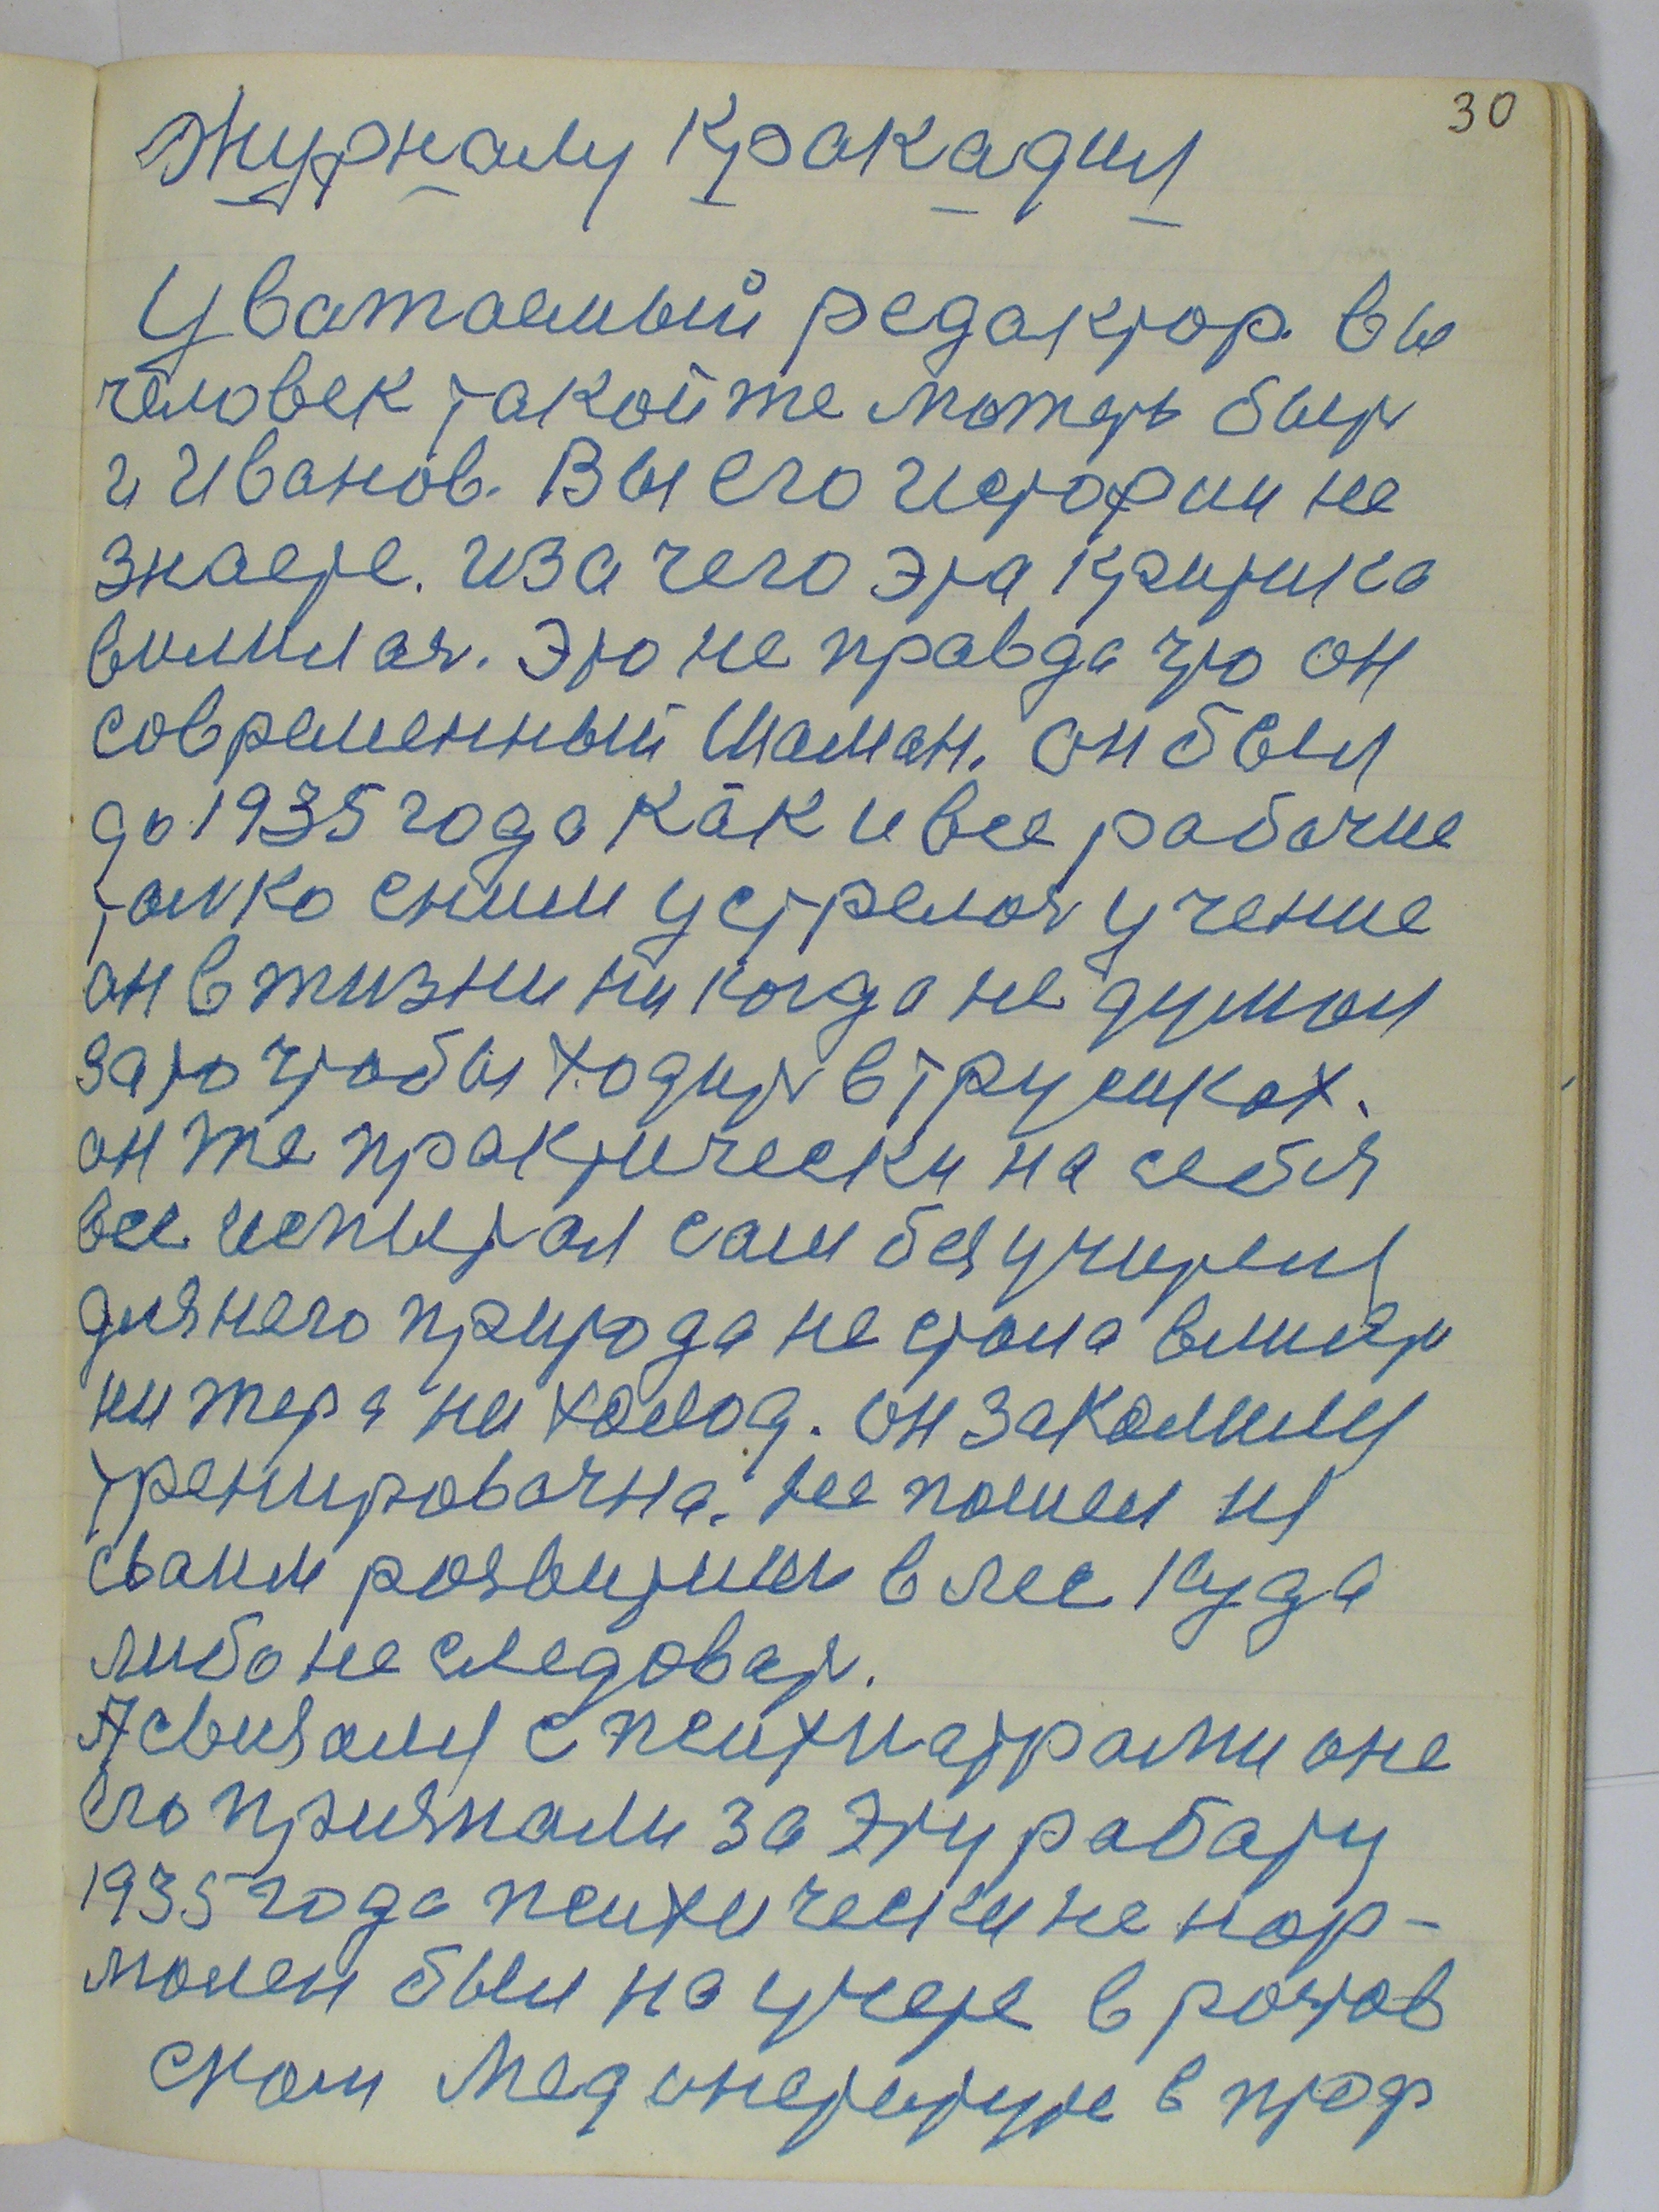 30
Журналу Кракадил
Уважаемый редактор. Вы
человек такой жеможеть быть
и Иванов. Вы его истории не
знаете. Иза чего эта критика
вилилас. Это не правда что он
современный Шаман. он был
до 1935 года как и все рабочие
толко сним устрелос учение
он в жизни ни когда не думал
зато чтобы ходить в трусиках.
он же практически на себя
все испытал сам без учителя
для него природа не стала влиять
ни жара ни холод. он закалилця
тренировачна. не пошел
сваим развитием в лес куда
либо не следовать.
А свизался с психиатрами оне
его признали за эту работу
1935 года психически не нор-
мален был на учете в ростов
ском мединституте в проф